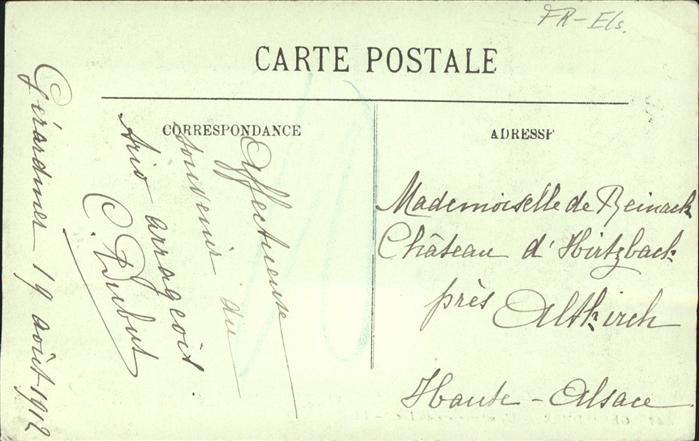 FR-Els.
CARTE POSTALE
CORRESPONDANCE
ADRESSE
Gérardmer 19 août 1912
Affectueux
souvenir du
trio arrageois
C. Dubut
Mademoiselle de Reinach
Château d'Hirtzbach
près Altkirch
Haute-Alsace